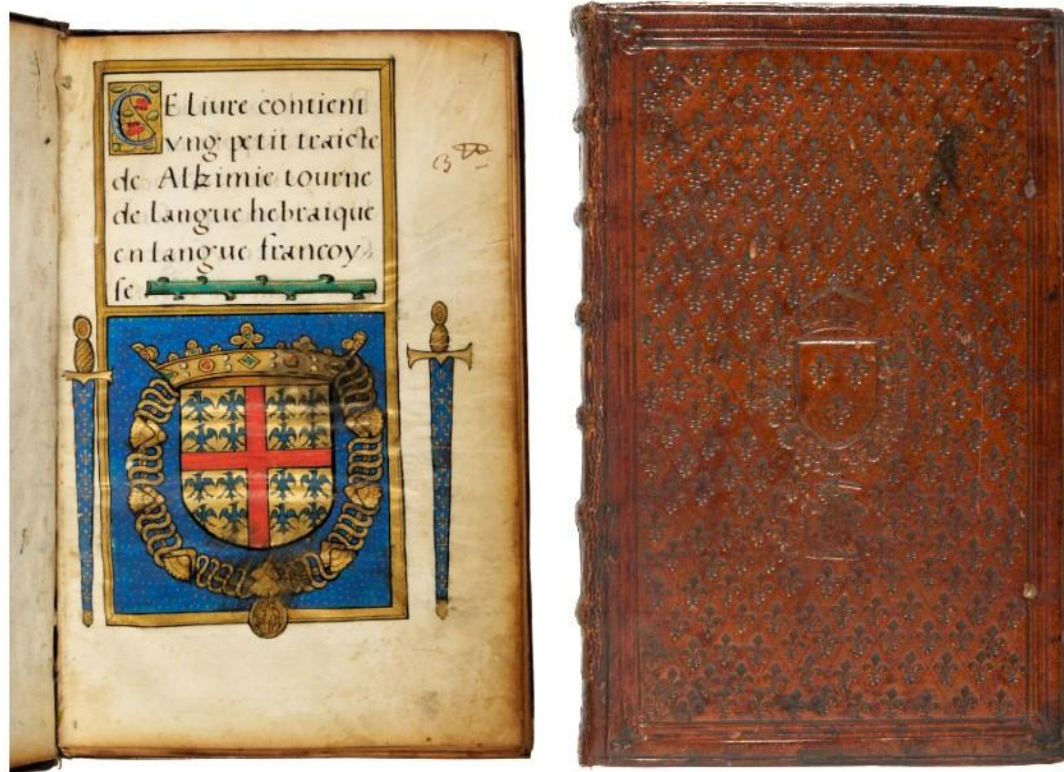 CE liure contient
vng petit traicte
de Alkimie tourne
de langue hebraique
en langue francoy
se